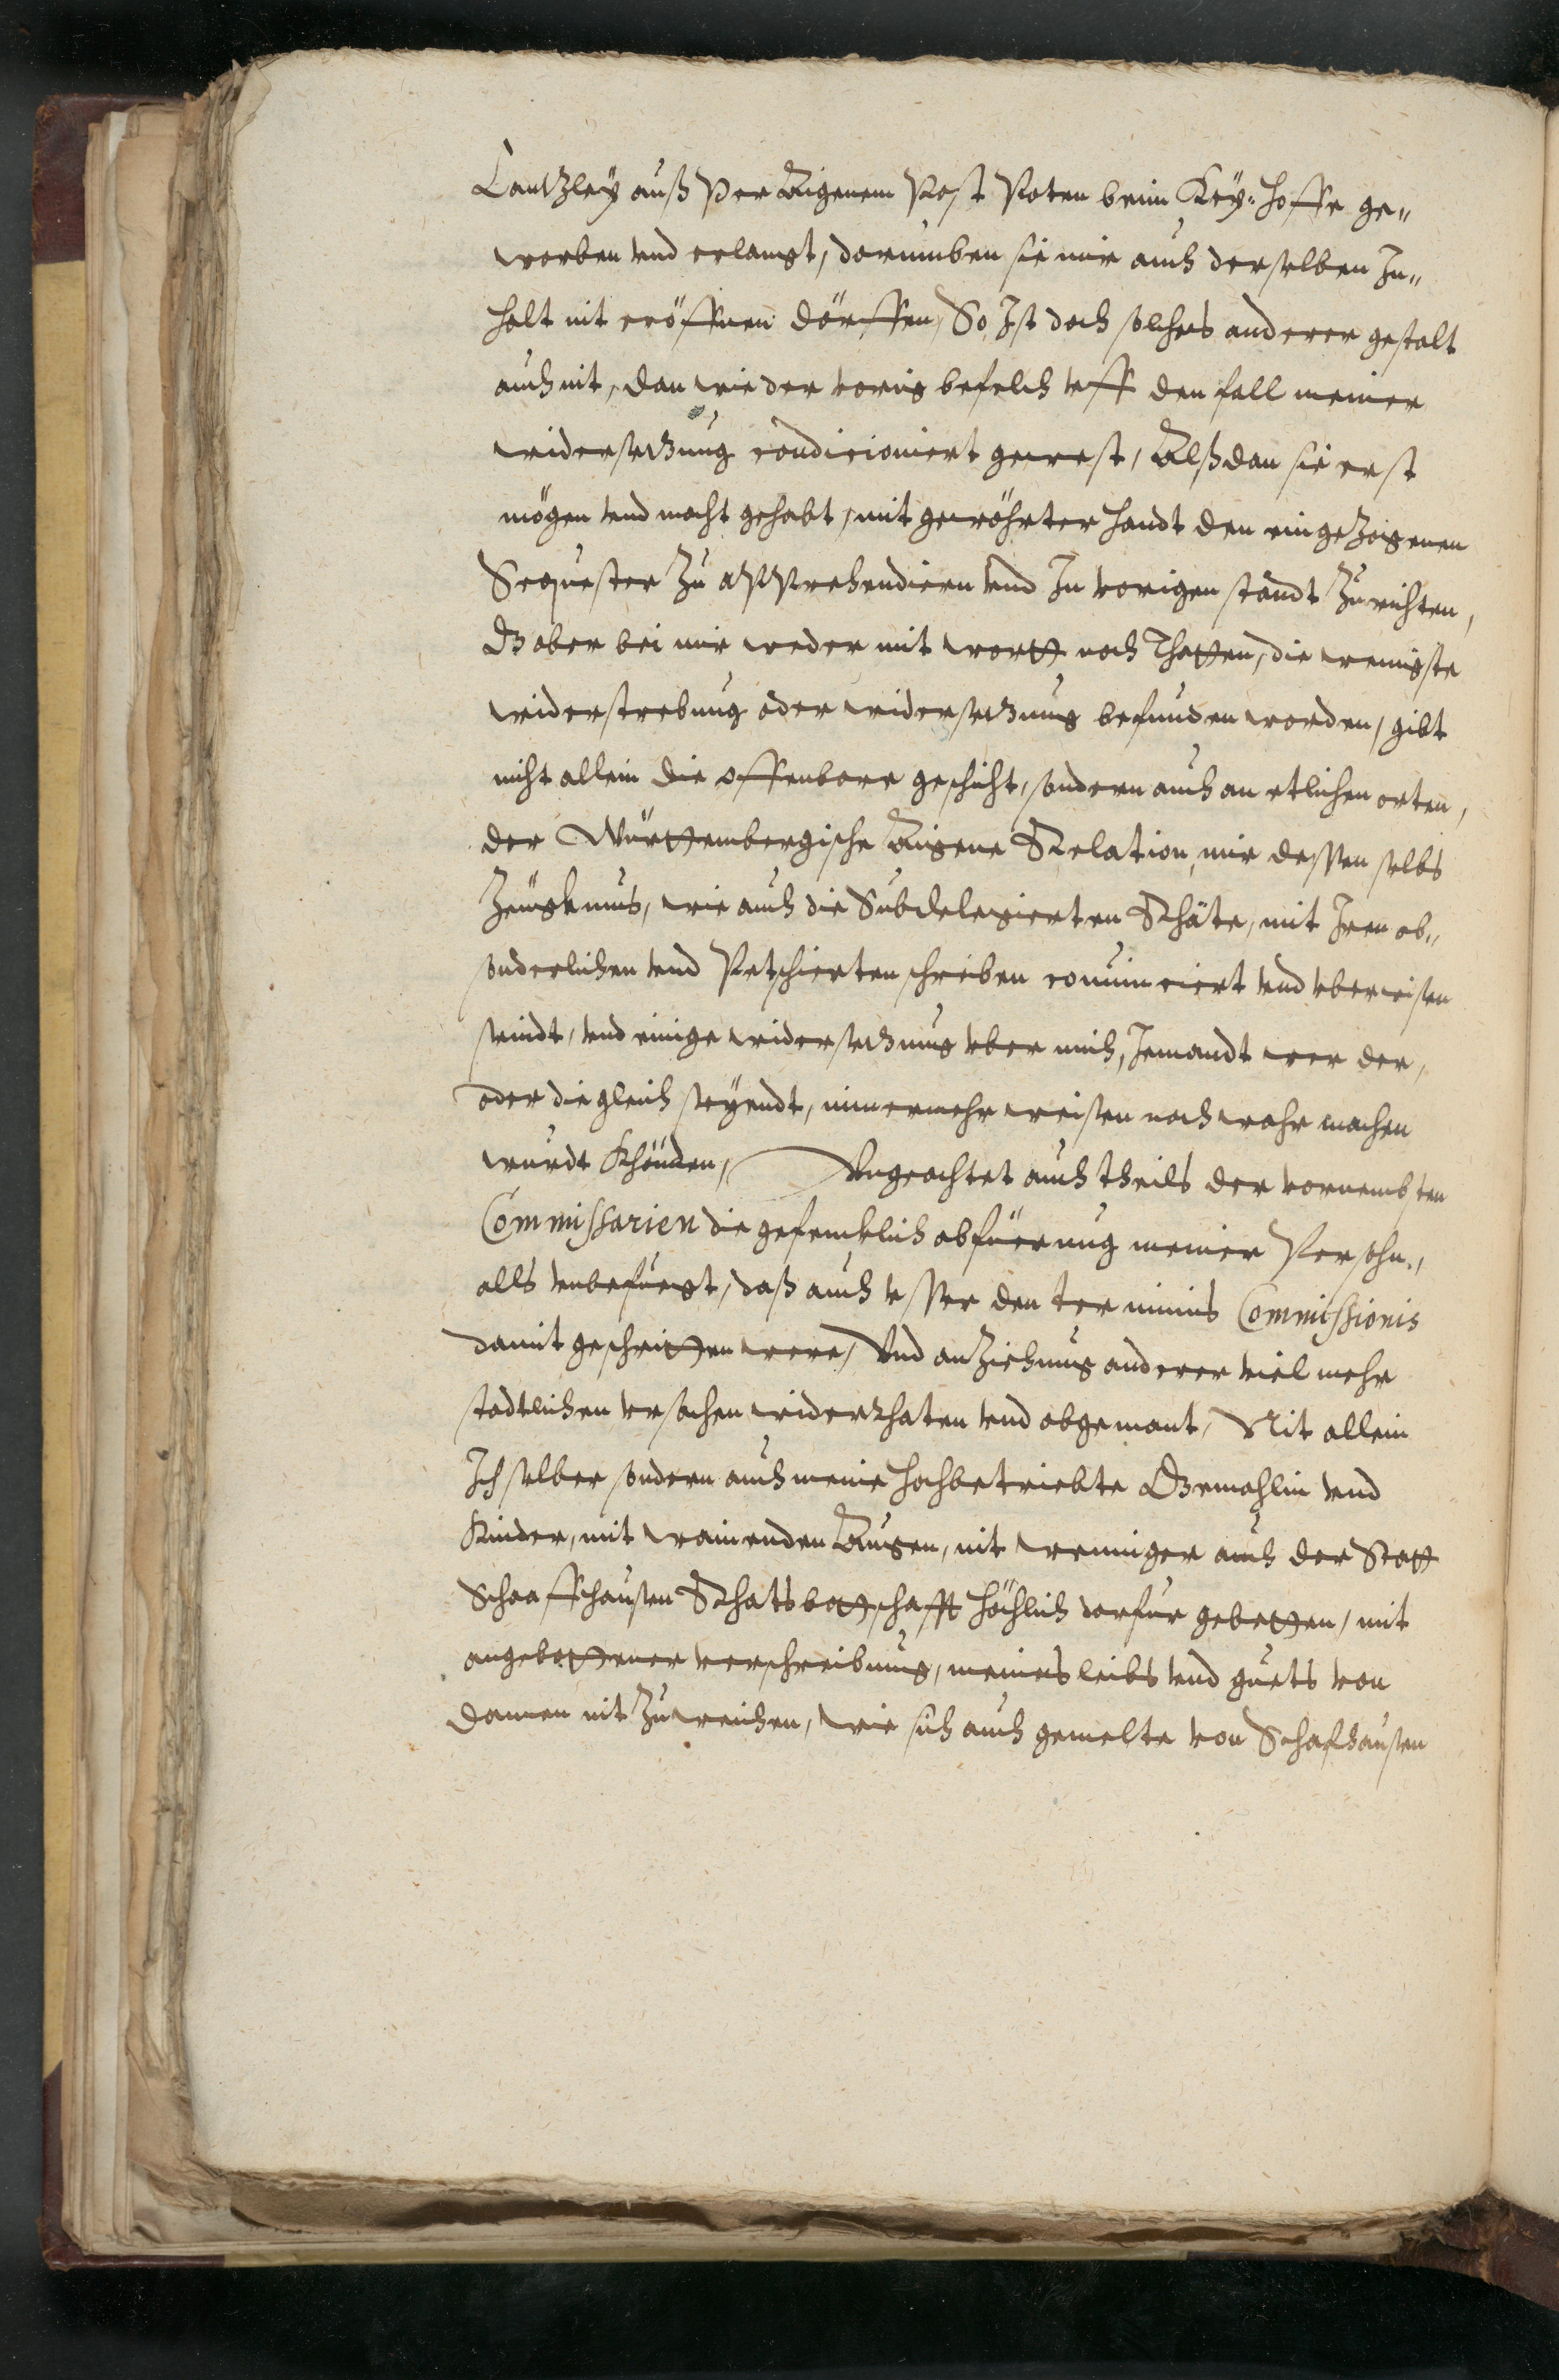 Cantzley auß Per Aigenem Post Poten beim Key: hoffe ge„
worben vnd erlangt, darumben sie mir auch derselben In„
halt nit eröffnen dörffen, So Ist doch solches anderer gestalt
auch nit, dan wie der vorig befelch vff den fall meiner
widersetzung condicioniert gewest, Alßdan sie erst
mögen vnd macht gehabt, mit gewöhrter handt den eingezogenen
Sequester zu apprehendiern vnd In vorigen standt Zurichten,
Ob aber bei mir weder mit wortt noch Thatten, die wenigste
widerstrebung oder widersetzung befunden worden, gibt
nicht allein die offenbare geschicht, sondern auch an etlichen orten,
der Württembergische Aigene Relation, mir dessen selbs
Zeugknus, wie auch die Subdelegierten Rhäte, mit Iren ob„
sonderlichen vnd Petschierten schreiben convinciert vnd vberwisen
seindt, vnd einige widersetzung vber mich, Jemandt wer der,
oder die gleich seyendt, nimmermehr weisen noch wahr machen
wurdt Khönden, Vngeachtet auch theils der vornembsten
Commissarien die gefencklich abfüerung meiner Persohn,
alls vnbefuegt, daß auch vsser den terminis Commissionis
damit geschritten were, Vnd anziehung anderer viel mehr
stadtlichen vrsachen widerrhaten vnd abgemant, Nit allein
Ich selber sondern auch meine hochbetriebte Gemahlin vnd
Kinder, mit wainenden Augen, nit weniger auch der Statt
Schaaffhausen Rhatsbottschafft höchlich darfur gebetten, mit
angebottener verschreibung, meines leibs vnd guets von
dannen nit Zuweichen, wie sich auch gemelte von Schafhausen